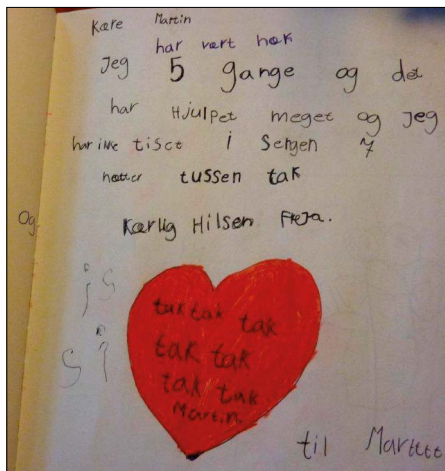 Kære Martin
Jeg har vært hos
5 gange og det
har Hjulpet meget og jeg
har ikke tiset i Sengen 7
nætter tussen tak
Og
Kærlig Hilsen Freja.
js
si
tak tak tak
tak tak
tak tak
Martin.
til Martttt